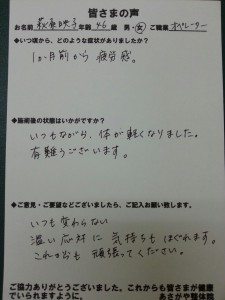 皆さまの声
お名前 萩原映子 年齢 46 歳 男・女 ご職業 オペレーター
◆いつ頃から、どのような症状がありましたか？
1か月前から 疲労感。
◆施術後の状態はいかがですか？
いつもながら、体が軽くなりました。
有難うございます。
◆ご意見・ご要望などございましたら、ご記入お願い致します。
いつも変わらない
温い応対に気持ちもほぐれます。
これからも頑張ってください。
ご協力ありがとうございました。これからも皆さまが健康
でいられますように。 あさがや整体院